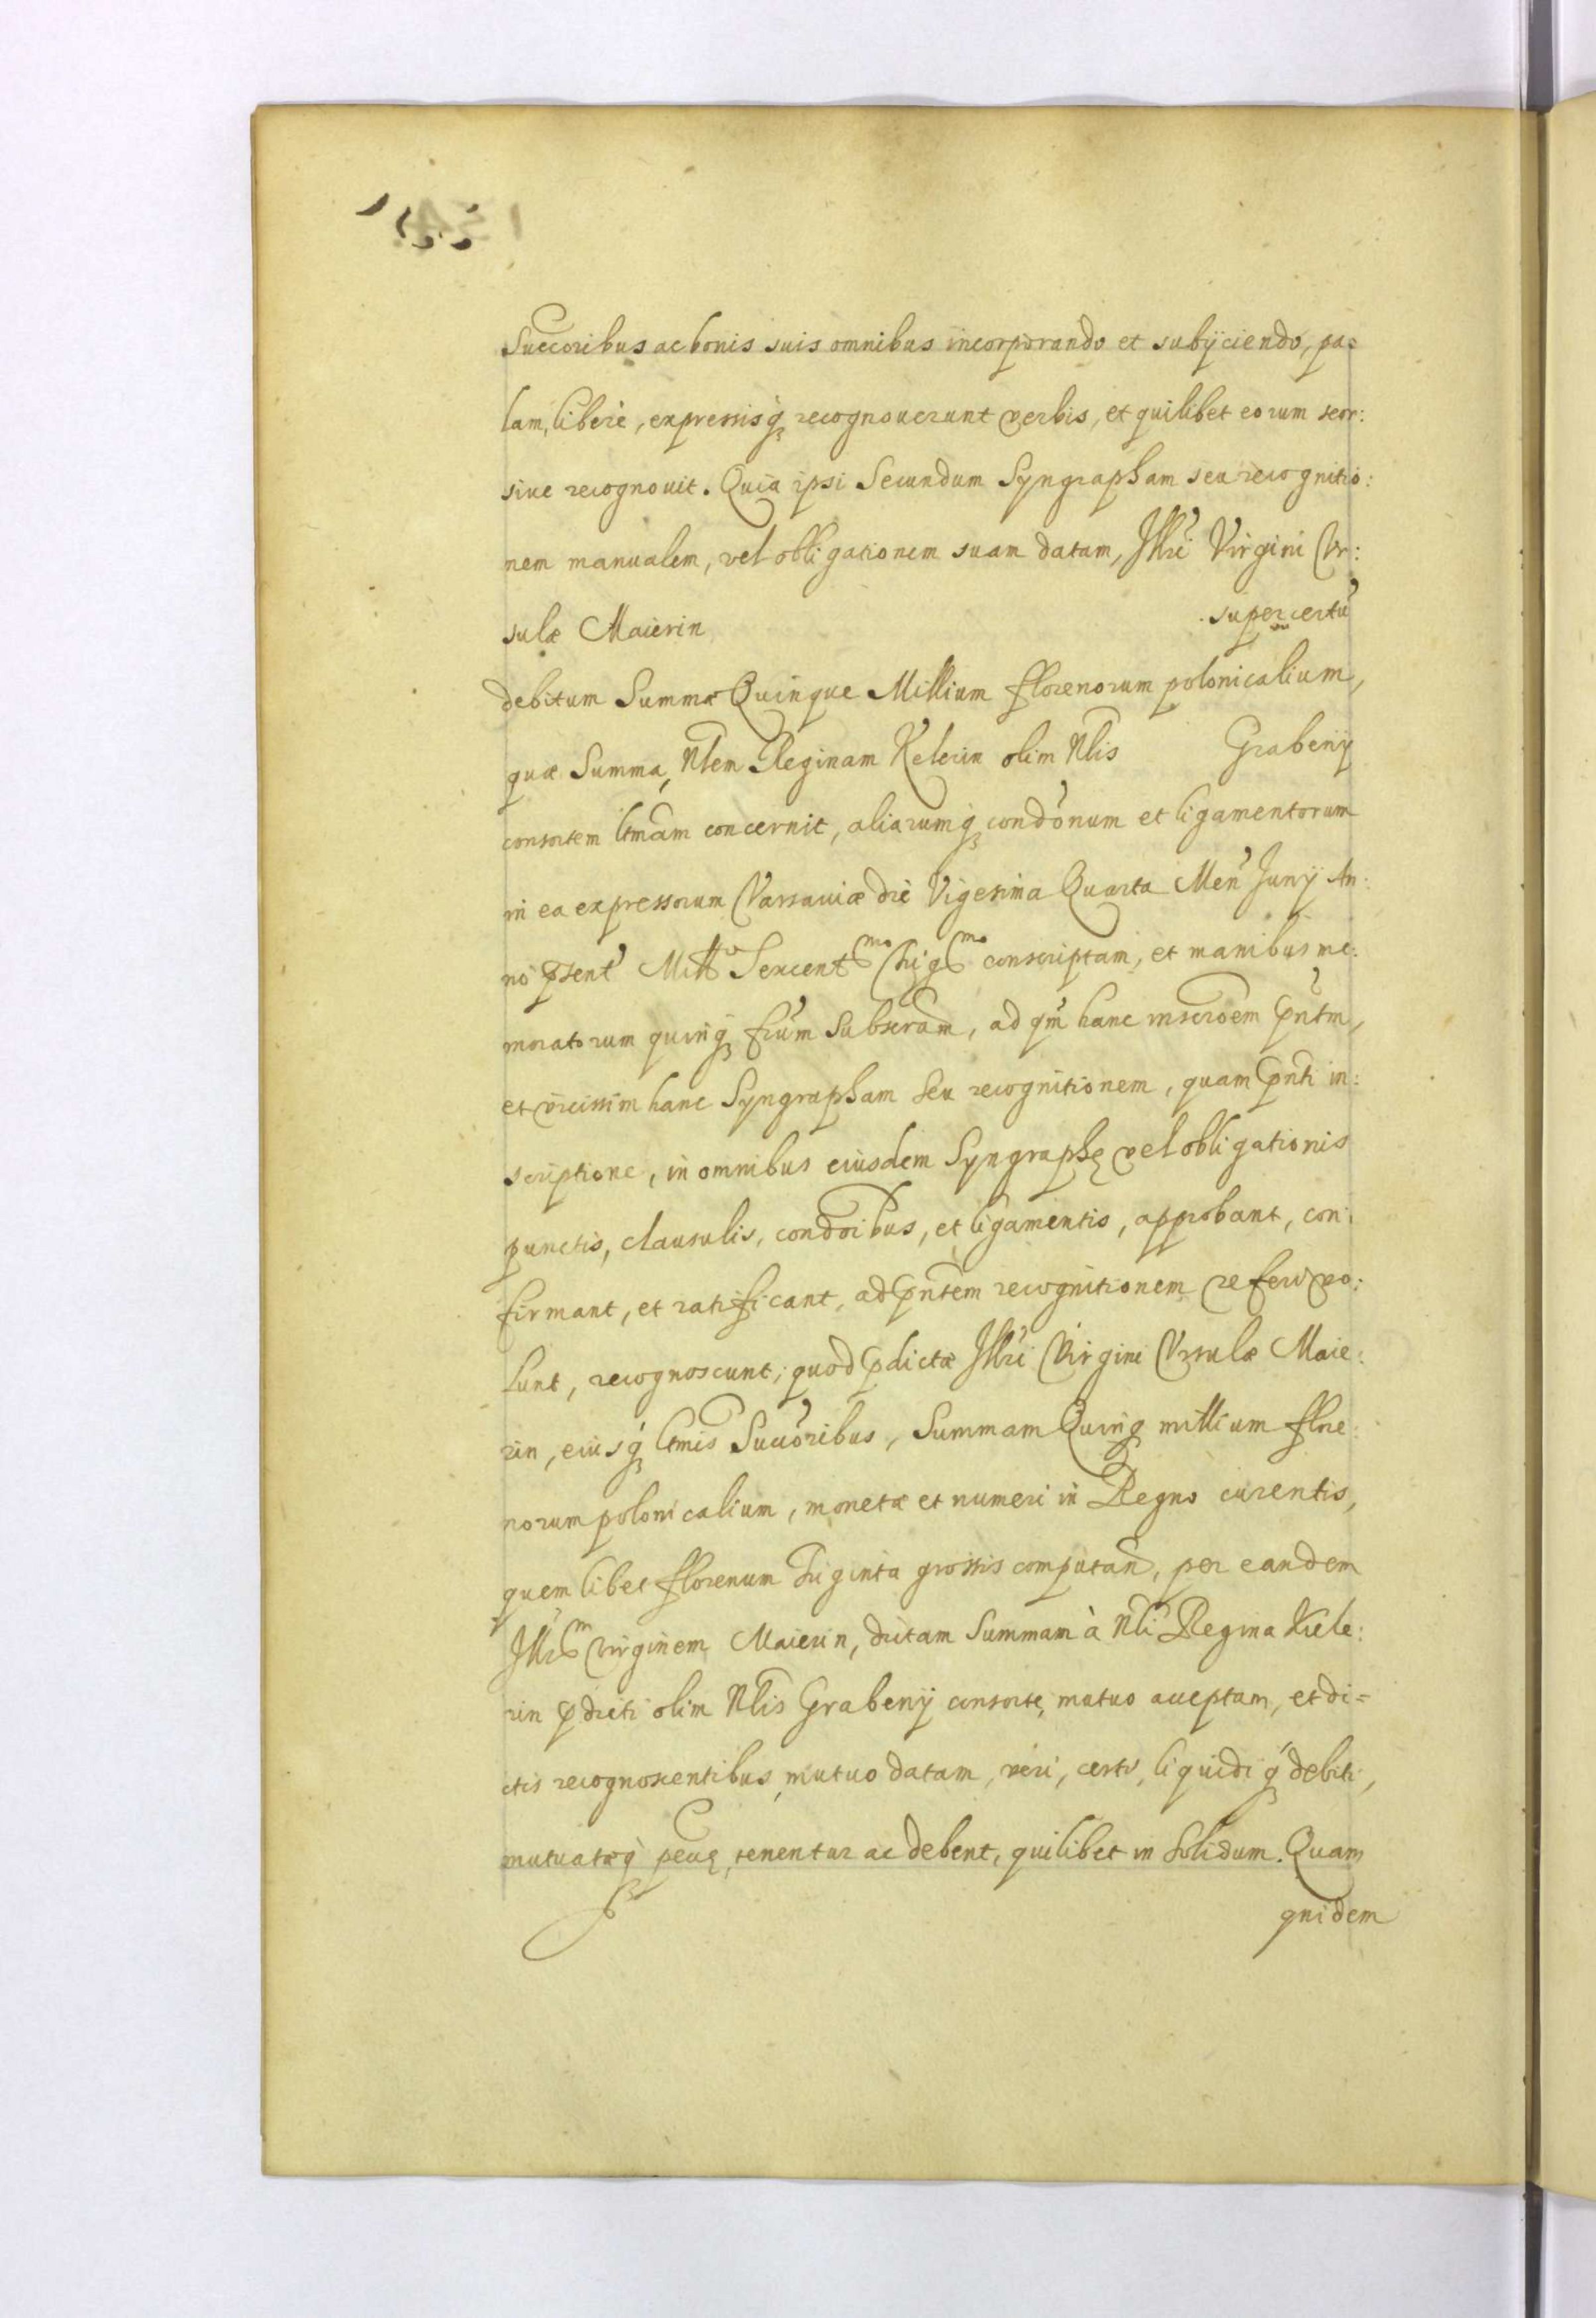 Succoribus ac bonis suis omnibus incorporando et subÿciendo, pa=
lam, liberè, expressisq́ recognouerunt verbis, et quilibet eorum seor:
siue recognouit. Quia ipsi Secundum Syngrapham seu recognitio:
nem manualem, vel obligationem suam datam, Illri Virgini Vr:
sulæ Maierin super certũ
debitum Summæ Quinque Millium florenorum polonicalium,
quæ Summa, Nlem Reginam Kelerin olim Nlis Grabenÿ
consortem ltmam concernit, aliarumq́ condonum et ligamentorum
in ea expressorum Varsauiæ die Vigesima Quarta Men Junÿ An:
no p̃sent Mill͞o Sexcent͞mo Trig͞mo conscriptam, et manibus me:
moratorum quinq́ frum Subscram, ad qm̃ hanc inscroem p̃ntm,
et vicissim hanc Syngrapham Seu recognitionem, quam p̃nti in:
scriptione, in omnibus eiusdem Syngraphę vel obligationis
punctis, clausulis, condoibus, et ligamentis, approbant, con:
firmant, et ratificant, ad p̃ntem recognitionem referi vo:
lunt, recognoscunt; quod p̃dictæ Illri Virgini Vrsulæ Maie:
rin, eiusq́ ltmis Succoribus, Summam Quinq́ millium flore:
norum polonicalium, monetæ et numeri in Regno curentis,
quemlibet florenum Triginta grossis computan, per eandem
Illr͞em Virginem Maierin, dictam Summam à Nli Regina Kiele:
rin p̃dicti olim Nlis Grabenÿ consorte, mutuo acceptam, et di=
ctis recognoscentibus, mutuo datam, veri, certi, liquidi q́ debiti,
mutuatæq́ pecuę, tenentur ac debent, quilibet in Solidum. Quam
quidem